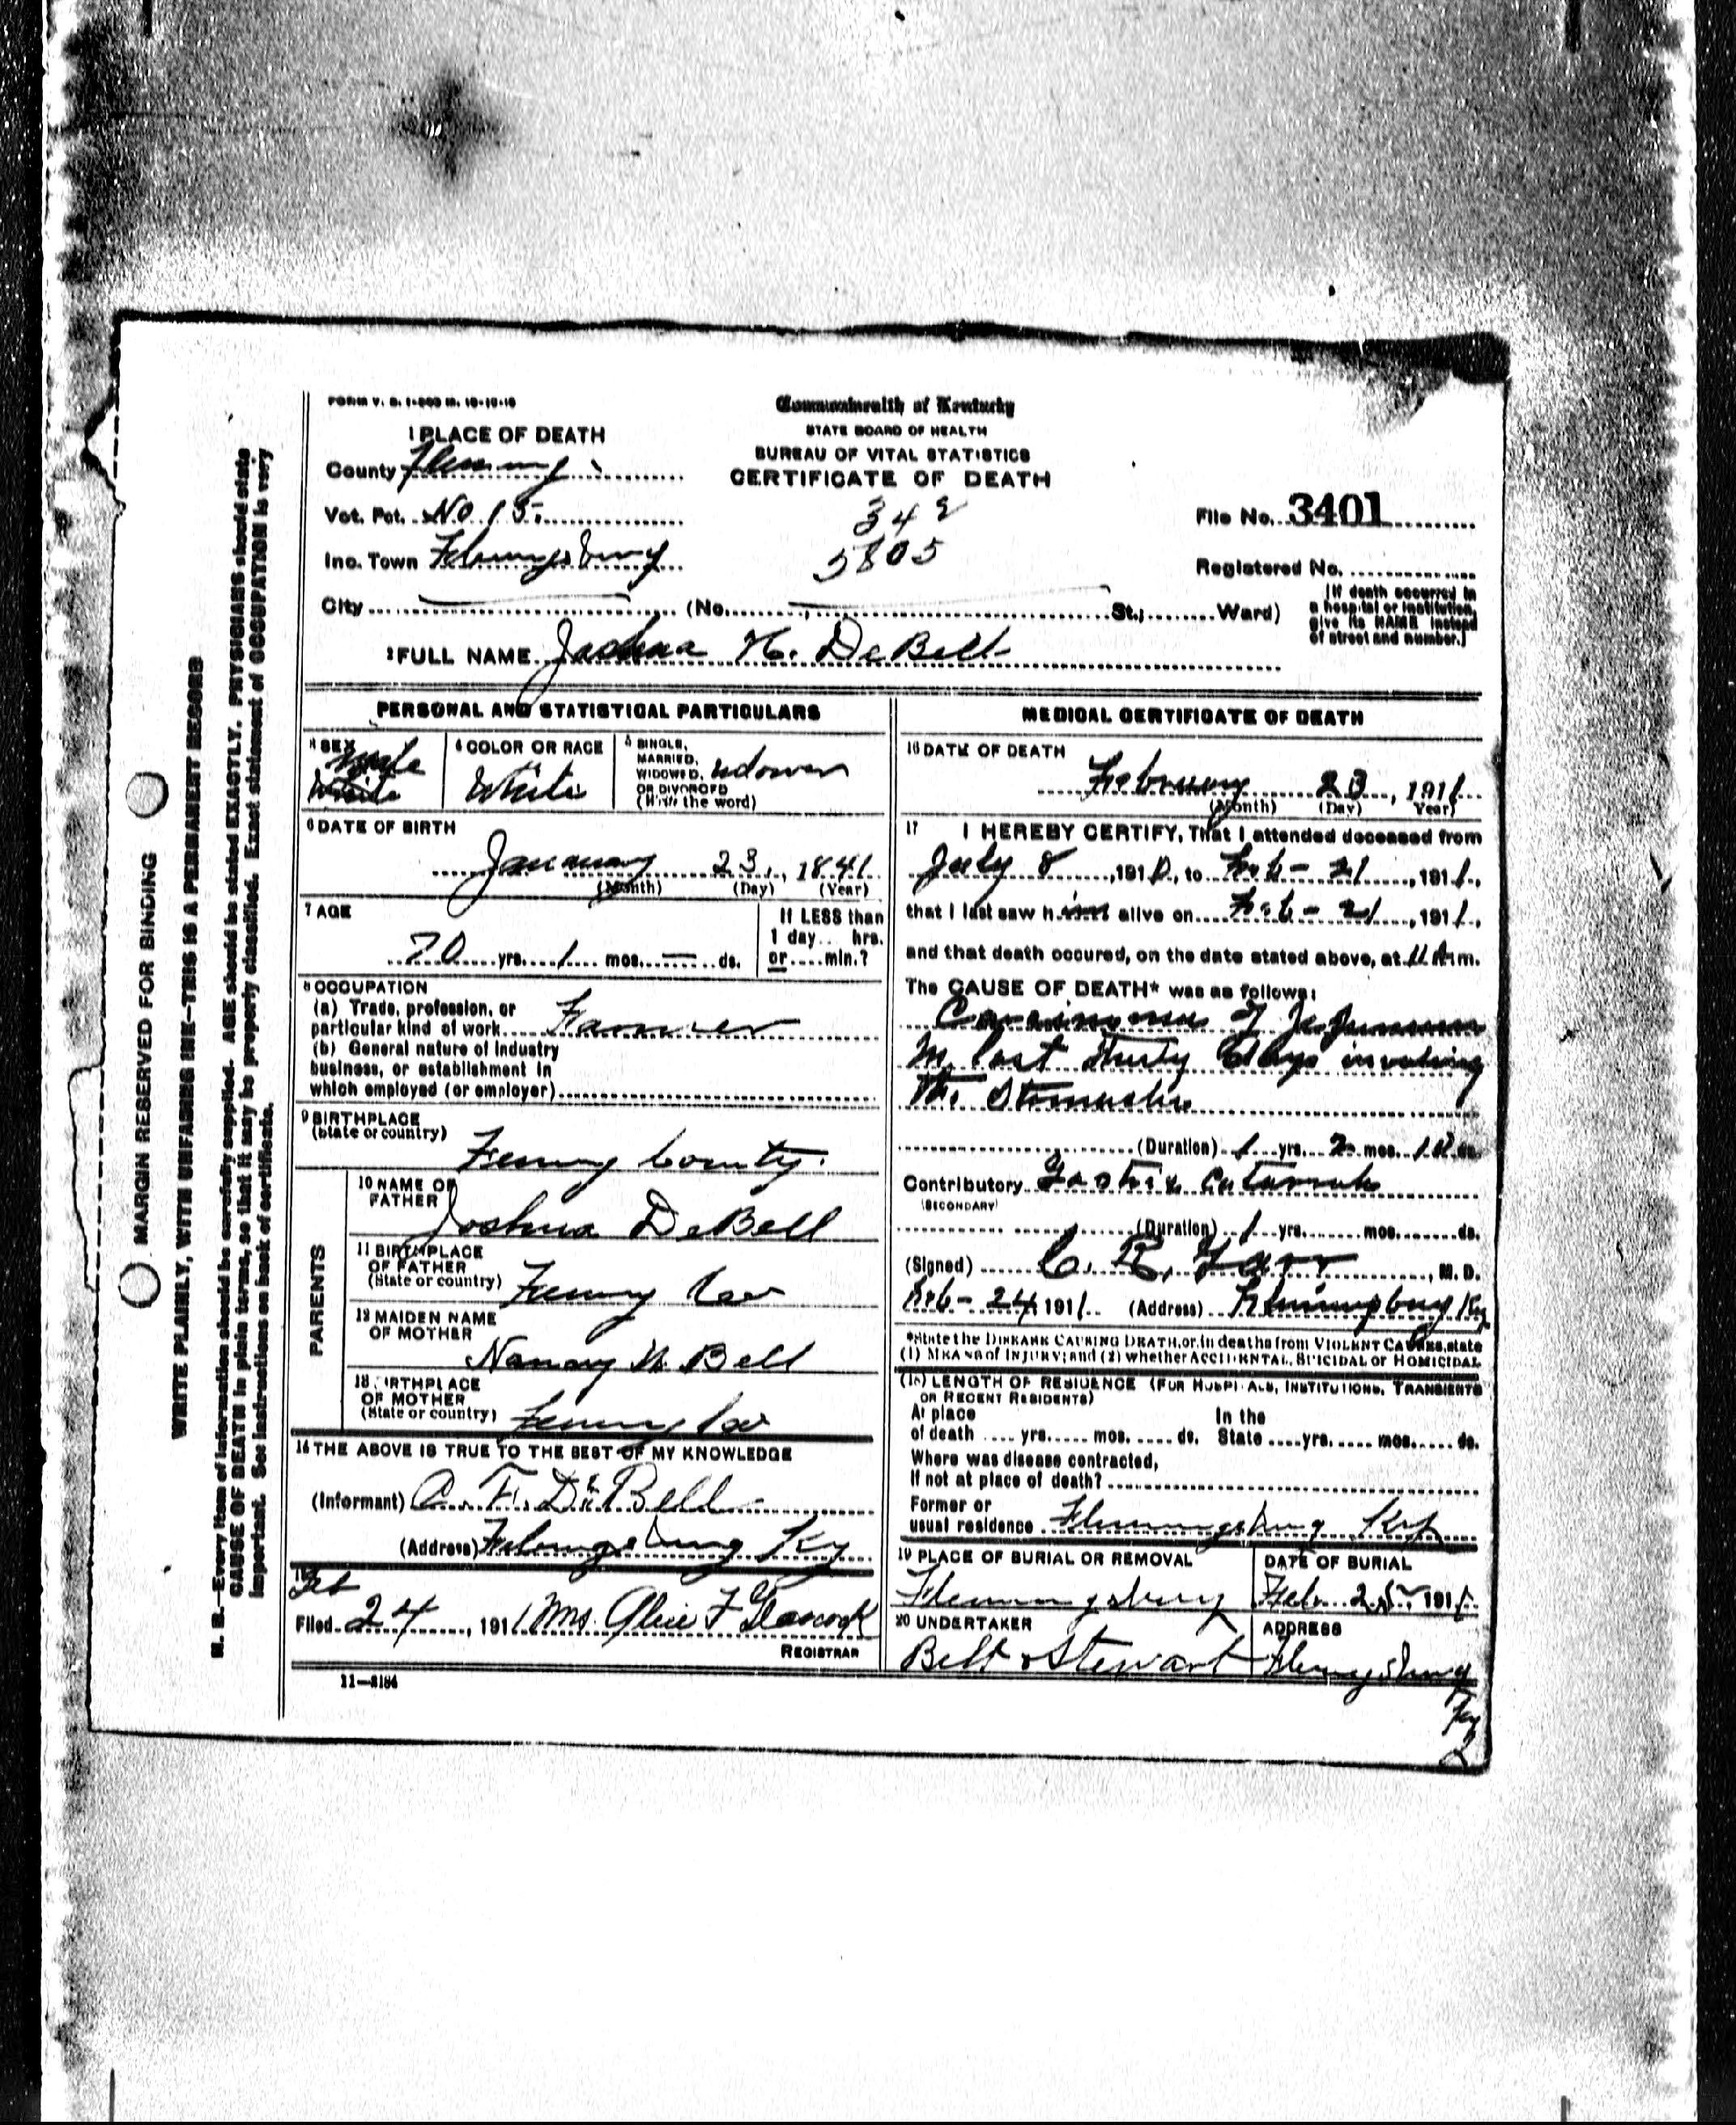 FORM V. S. 1-
Commonwealth of Kentucky
STATE BOARD OF HEALTH
BUREAU OF VITAL STATISTICS
CERTIFICATE OF DEATH
1 PLACE OF DEATH
County Fleming
Vot. Pct. No 15.
Inc. Town Flemingsburg
City (No. St.; Ward)
5805
File No. 3401
Registered No.
[If death occurred in
a hospital or institution,
give its NAME instead
of street and number.]
2 FULL NAME Joshua H. DeBell
PERSONAL AND STATISTICAL PARTICULARS
SEX
Male
White
4 COLOR OR RACE
White
5 SINGLE,
MARRIED,
WIDOWED,
OR DIVORCED
(Write the word)
6 DATE OF BIRTH
January 23, 1841
(Month) (Day) (Year)
7 AGE
70 yrs. 1 mos. — ds.
If LESS than
1 day hrs.
or min.?
8 OCCUPATION
(a) Trade, profession, or
particular kind of work Farmer
(b) General nature of industry
business, or establishment in
which employed (or employer)
9 BIRTHPLACE
(State or country)
Fleming County.
PARENTS
10 NAME OF
FATHER
Joshua DeBell
11 BIRTHPLACE
OF FATHER
(State or country) Fleming Co
12 MAIDEN NAME
OF MOTHER
Bell
13 BIRTHPLACE
OF MOTHER
(State or country) Fleming Co
14 THE ABOVE IS TRUE TO THE BEST OF MY KNOWLEDGE
(Informant) C. F. DeBell
(Address) Flemingsburg Ky
Feb
Filed 24, 1911 Mrs. Alice F
REGISTRAR
11—2184
MEDICAL CERTIFICATE OF DEATH
16 DATE OF DEATH
February 23, 1911
(Month) (Day) Year)
17 I HEREBY CERTIFY, That I attended deceased from
July 8, 1910, to Feb - 21, 1911,
that I last saw him alive on Feb - 21, 1911,
and that death occured, on the date stated above, at 11 A.m.
The CAUSE OF DEATH* was as follows:
Carcinoma of Jejunum
last thirty days involving
the Stomach
(Duration) 1 yrs. 2 mos. ds.
Contributory Gastric Catarrh
(SECONDARY)
(Duration) 1 yrs. mos. ds.
(Signed) C. R. Garr, M. D.
Feb - 24, 1911 (Address) Flemingsburg Ky
*State the DISEASE CAUSING DEATH, or, in deaths from VIOLENT CAUSES, state
(1) MEANS of INJURY; and (2) whether ACCIDENTAL, SUICIDAL or HOMICIDAL
LENGTH OF RESIDENCE (FOR HOSPITALS, INSTITUTIONS, TRANSIENTS
OR RECENT RESIDENTS)
At place In the
of death yrs. mos. ds. State yrs. mos. ds.
Where was disease contracted,
If not at place of death?
Former or
usual residence Flemingsburg Ky
19 PLACE OF BURIAL OR REMOVAL
Flemingsburg
DATE OF BURIAL
Feb. 25, 1911
20 UNDERTAKER
Belt & Stewart
ADDRESS
Flemingsburg
Ky
2
MARGIN RESERVED FOR BINDING
WRITE PLAINLY, WITH UNFADING INK—THIS IS A PERMANENT RECORD
N. B.—Every item of information should be carefully supplied. AGE should be stated EXACTLY. PHYSICIANS should state
CAUSE OF DEATH in plain terms, so that it may be properly classified. Exact statement of OCCUPATION is very
important. See instructions on back of certificate.